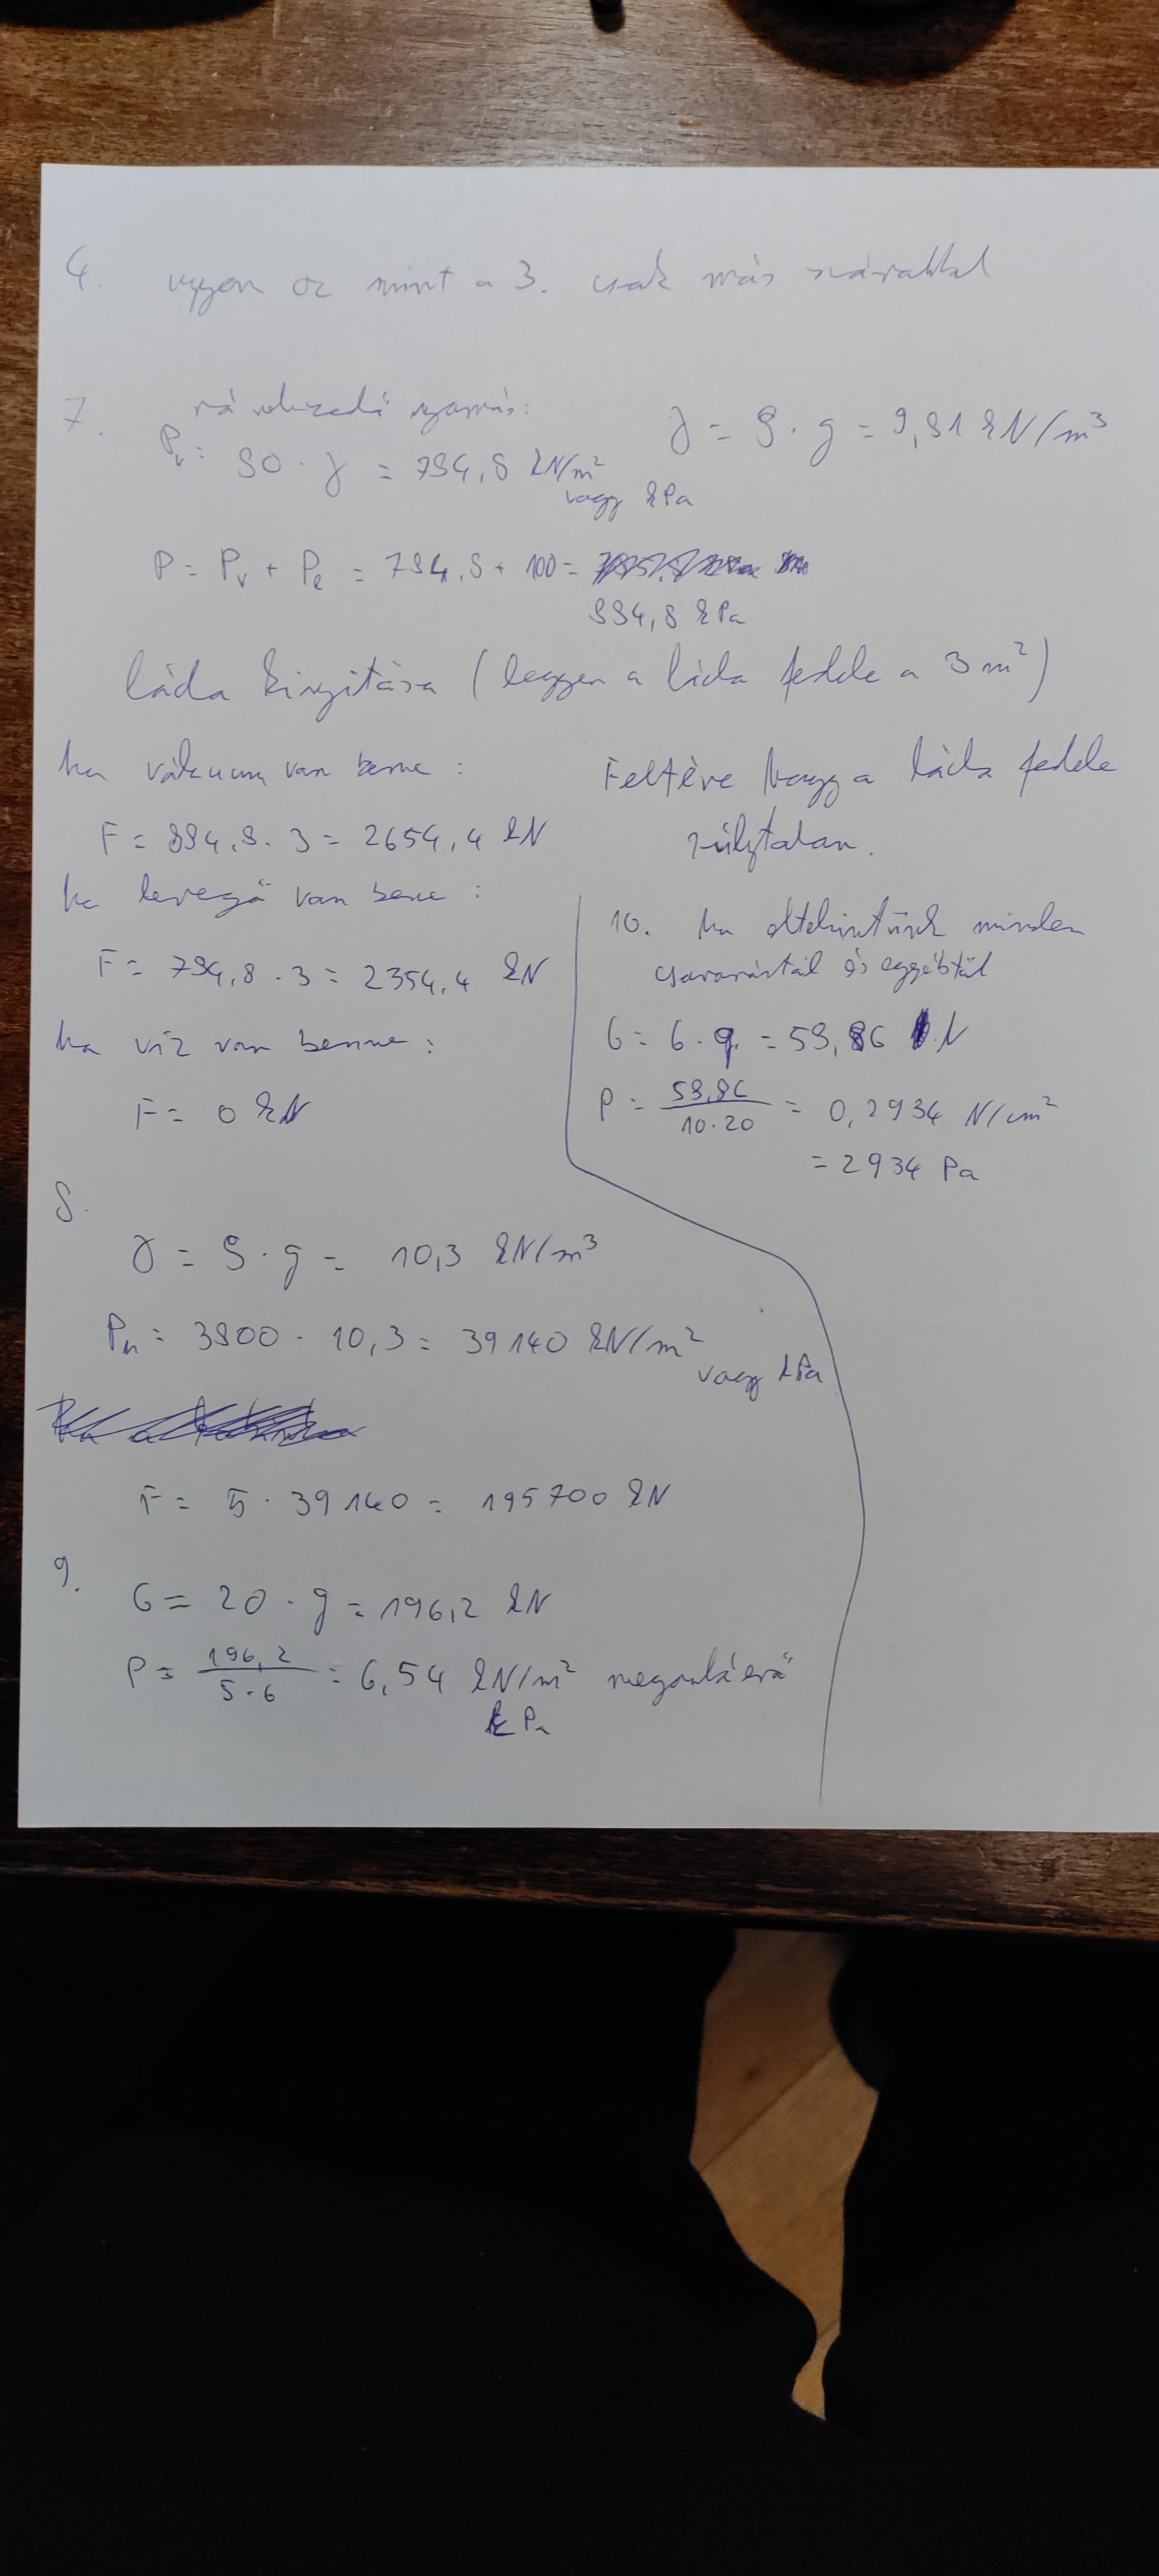 4. ugyan az mint a 3. csak más számokkal
7. rá nehezedő nyomás:
γ = ρ · g = 9,81 kN/m³
Pv = 80 · γ = 784,8 kN/m²
vagy kPa
P = Pv + Pe = 784,8 + 100 =
884,8 kPa
láda kinyitása (legyen a láda fedele a 3 m²)
ha vákuum van benne :
F = 884,8 · 3 = 2654,4 kN
ha levegő van bene :
F = 784,8 · 3 = 2354,4 kN
ha víz van benne :
F = 0 kN
Feltéve hogy a láda fedele
súlytalan.
8.
γ = ρ · g = 10,3 kN/m³
Pn = 3800 · 10,3 = 39140 kN/m²
vagy kPa
F = 5 · 39140 = 195700 kN
9.
G = 20 · g = 196,2 kN
P = 196,2 / 5·6 = 6,54 kN/m²
kPa
10. ha eltekintünk minden
csavarástól és egyébtől
G = 6 · g = 58,86 N
P = 58,86 / 10·20 = 0,2934 N/cm²
= 2934 Pa